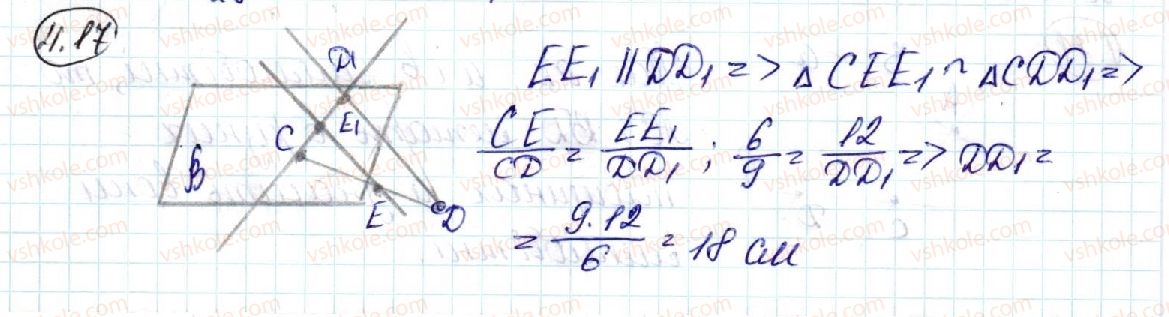 4.17
D₁
E₁
C
B
E
D
EE₁ || DD₁ => △CEE₁ ~ △CDD₁ =>
CE/CD = EE₁/DD₁ ; 6/9 = 12/DD₁ => DD₁ =
= 9·12/6 = 18 см
vshkole.com